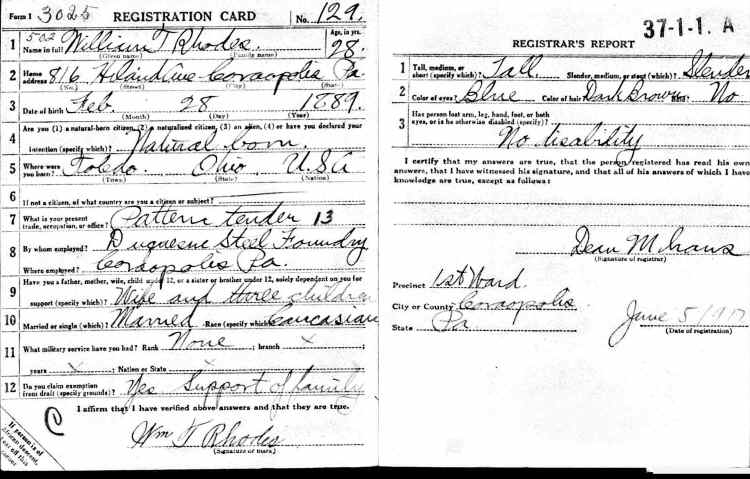 Form 1 3025 REGISTRATION CARD No. 129
502
1 Name in full William T Rhodes. Age, in yrs. 28.
(Given name) (Family name)
2 Home address 816 Hiland Ave Coraopolis Pa.
(No.) (Street) (City) (State)
3 Date of birth Feb. 28 1889.
(Month) (Day) (Year)
4 Are you (1) a natural-born citizen, (2) a naturalized citizen, (3) an alien, (4) or have you declared your
intention (specify which)? Natural born.
5 Where were you born? Toledo. Ohio U.S.A
(Town) (State) (Nation)
6 If not a citizen, of what country are you a citizen or subject?
7 What is your present trade, occupation, or office? Pattern tender 13
8 By whom employed? Duquesne Steel Foundry
Where employed? Coraopolis Pa.
9 Have you a father, mother, wife, child under 12, or a sister or brother under 12, solely dependent on you for
support (specify which)? Wife and three children
10 Married or single (which)? Married Race (specify which)? Caucasian
11 What military service have you had? Rank None ; branch x ;
years x ; Nation or State
12 Do you claim exemption from draft (specify grounds)? Yes Support of family
I affirm that I have verified above answers and that they are true.
Wm T Rhodes
(Signature or mark)
If person is of African descent, tear off this corner
37-1-1. A
REGISTRAR'S REPORT
1 Tall, medium, or short (specify which)? Tall. Slender, medium, or stout (which)? Slender
2 Color of eyes? Blue Color of hair? Dark Brown Bald? No
3 Has person lost arm, leg, hand, foot, or both
eyes, or is he otherwise disabled (specify)?
No disability
I certify that my answers are true, that the person registered has read his own
answers, that I have witnessed his signature, and that all of his answers of which I have
knowledge are true, except as follows:
(Signature of registrar)
Precinct 1st Ward.
City or County Coraopolis
State Pa.
June 5/917
(Date of registration)